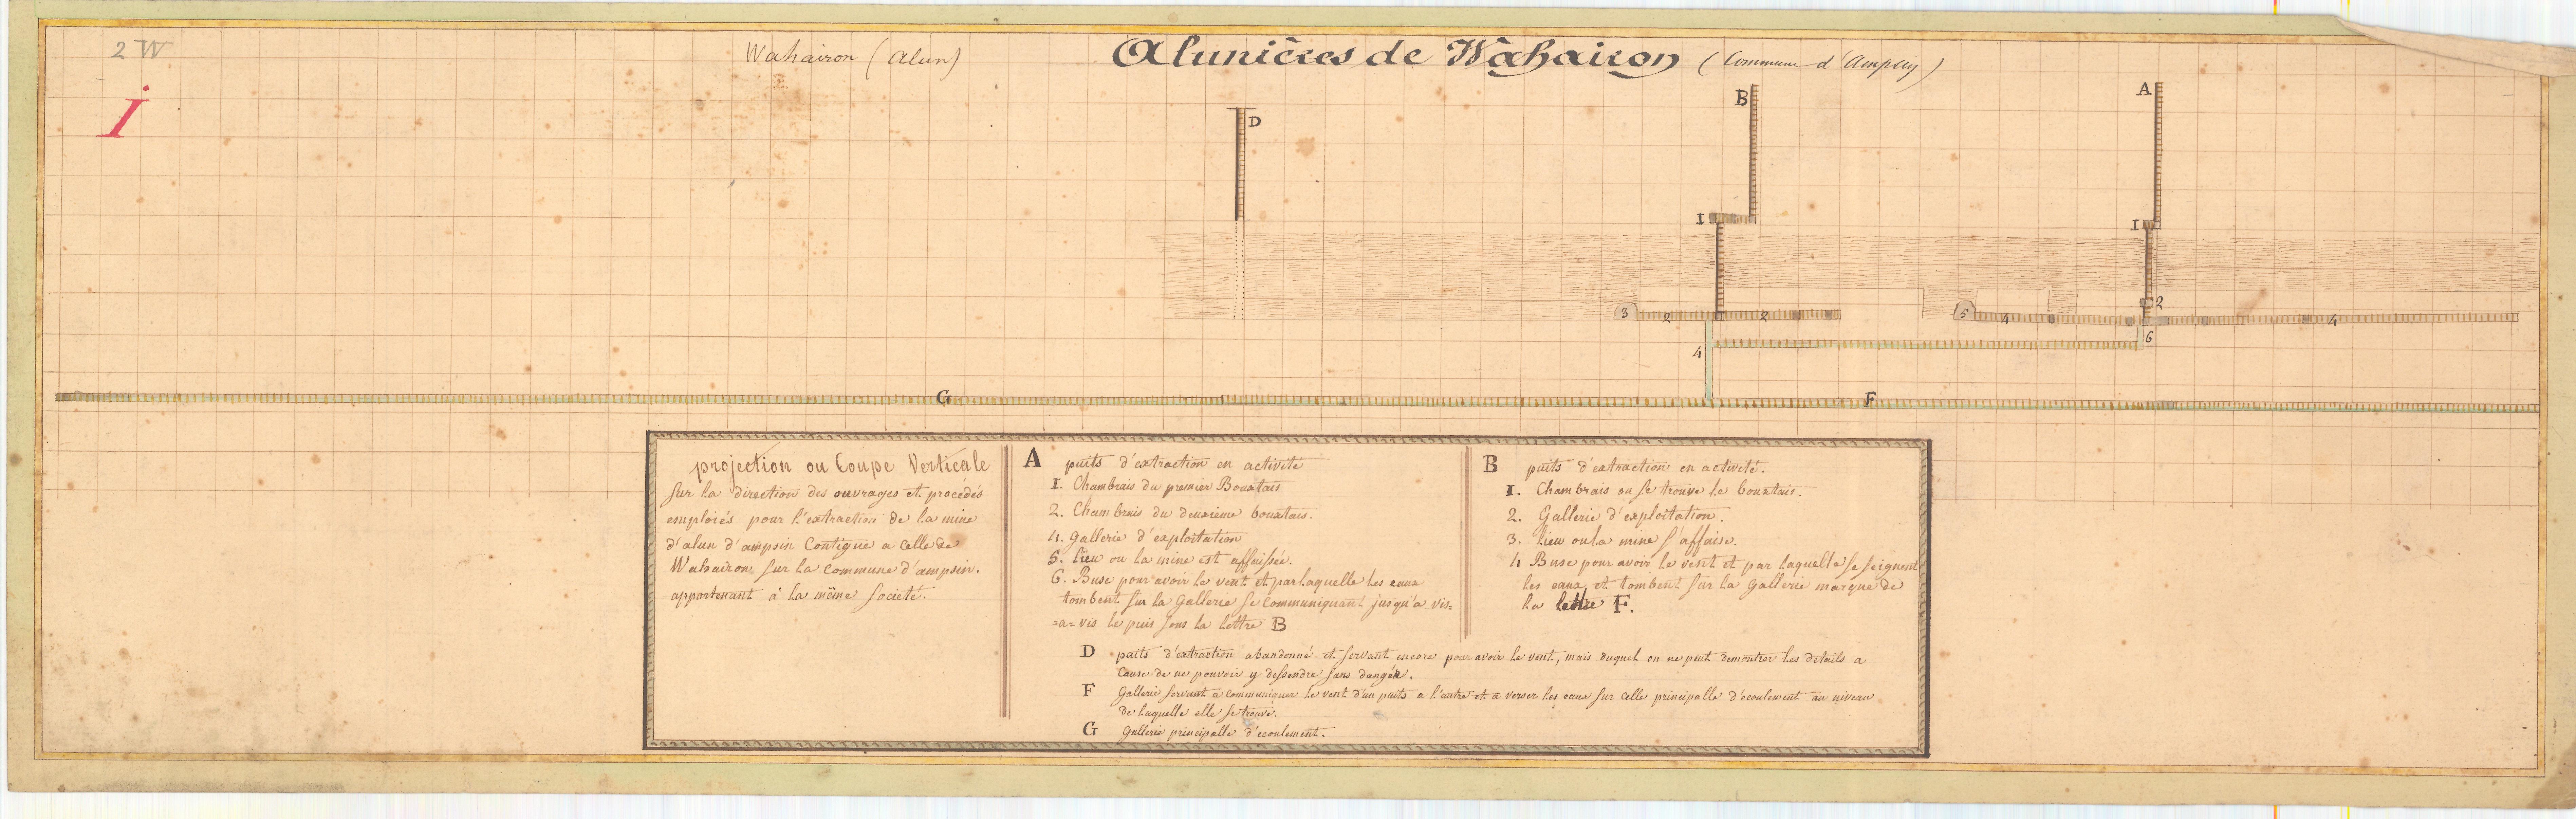 2 W
i
Wahairon (alun)
Alunières de Wahairon (Commune d'Ampsin)
D
B
A
1
1
2
3
2
2
5
4
4
6
4
G
F
projection ou Coupe Verticale
sur la direction des ouvrages et procédés
emploiés pour l'extraction de la mine
d'alun d'ampsin Contigue a celle de
Wahairon, sur la commune d'ampsin.
appartenant à la même societé.
A puits d'extraction en activité
1. Chambrais du premier Bouxtais
2. Chambrais du deuxième bouxtais.
4. gallerie d'exploitation
5. lieu ou la mine est affaissée.
6. Buse pour avoir le vent et par laquelle les eaux
tombent sur la Gallerie se Communiquant jusqu'a vis=
=a=vis le puis sous la lettre B
B puits d'extraction en activité.
1. Chambrais ou se trouve le bouxtais.
2. Gallerie d'exploitation.
3. lieu ou la mine s'affaise.
4 Buse pour avoir le vent et par laquelle se seignent
les eaux, et tombent sur la Gallerie marqué de
la lettre F.
D puits d'extraction abandonné et servant encore pour avoir le vent, mais duquel on ne peut demontrer les details a
Cause de ne pouvoir y dessendre sans dangér.
F Gallerie servant a communiquer le vent d'un puits a l'autre et a verser les eaux sur celle principalle d'écoulement au niveau
de laquelle elle se trouve.
G Gallerie principalle d'ecoulement.